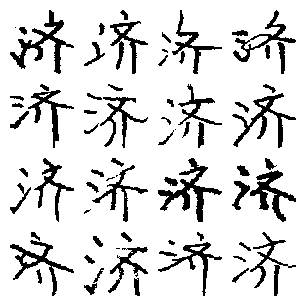 济济济济
济济济济
济济济济
济济济济